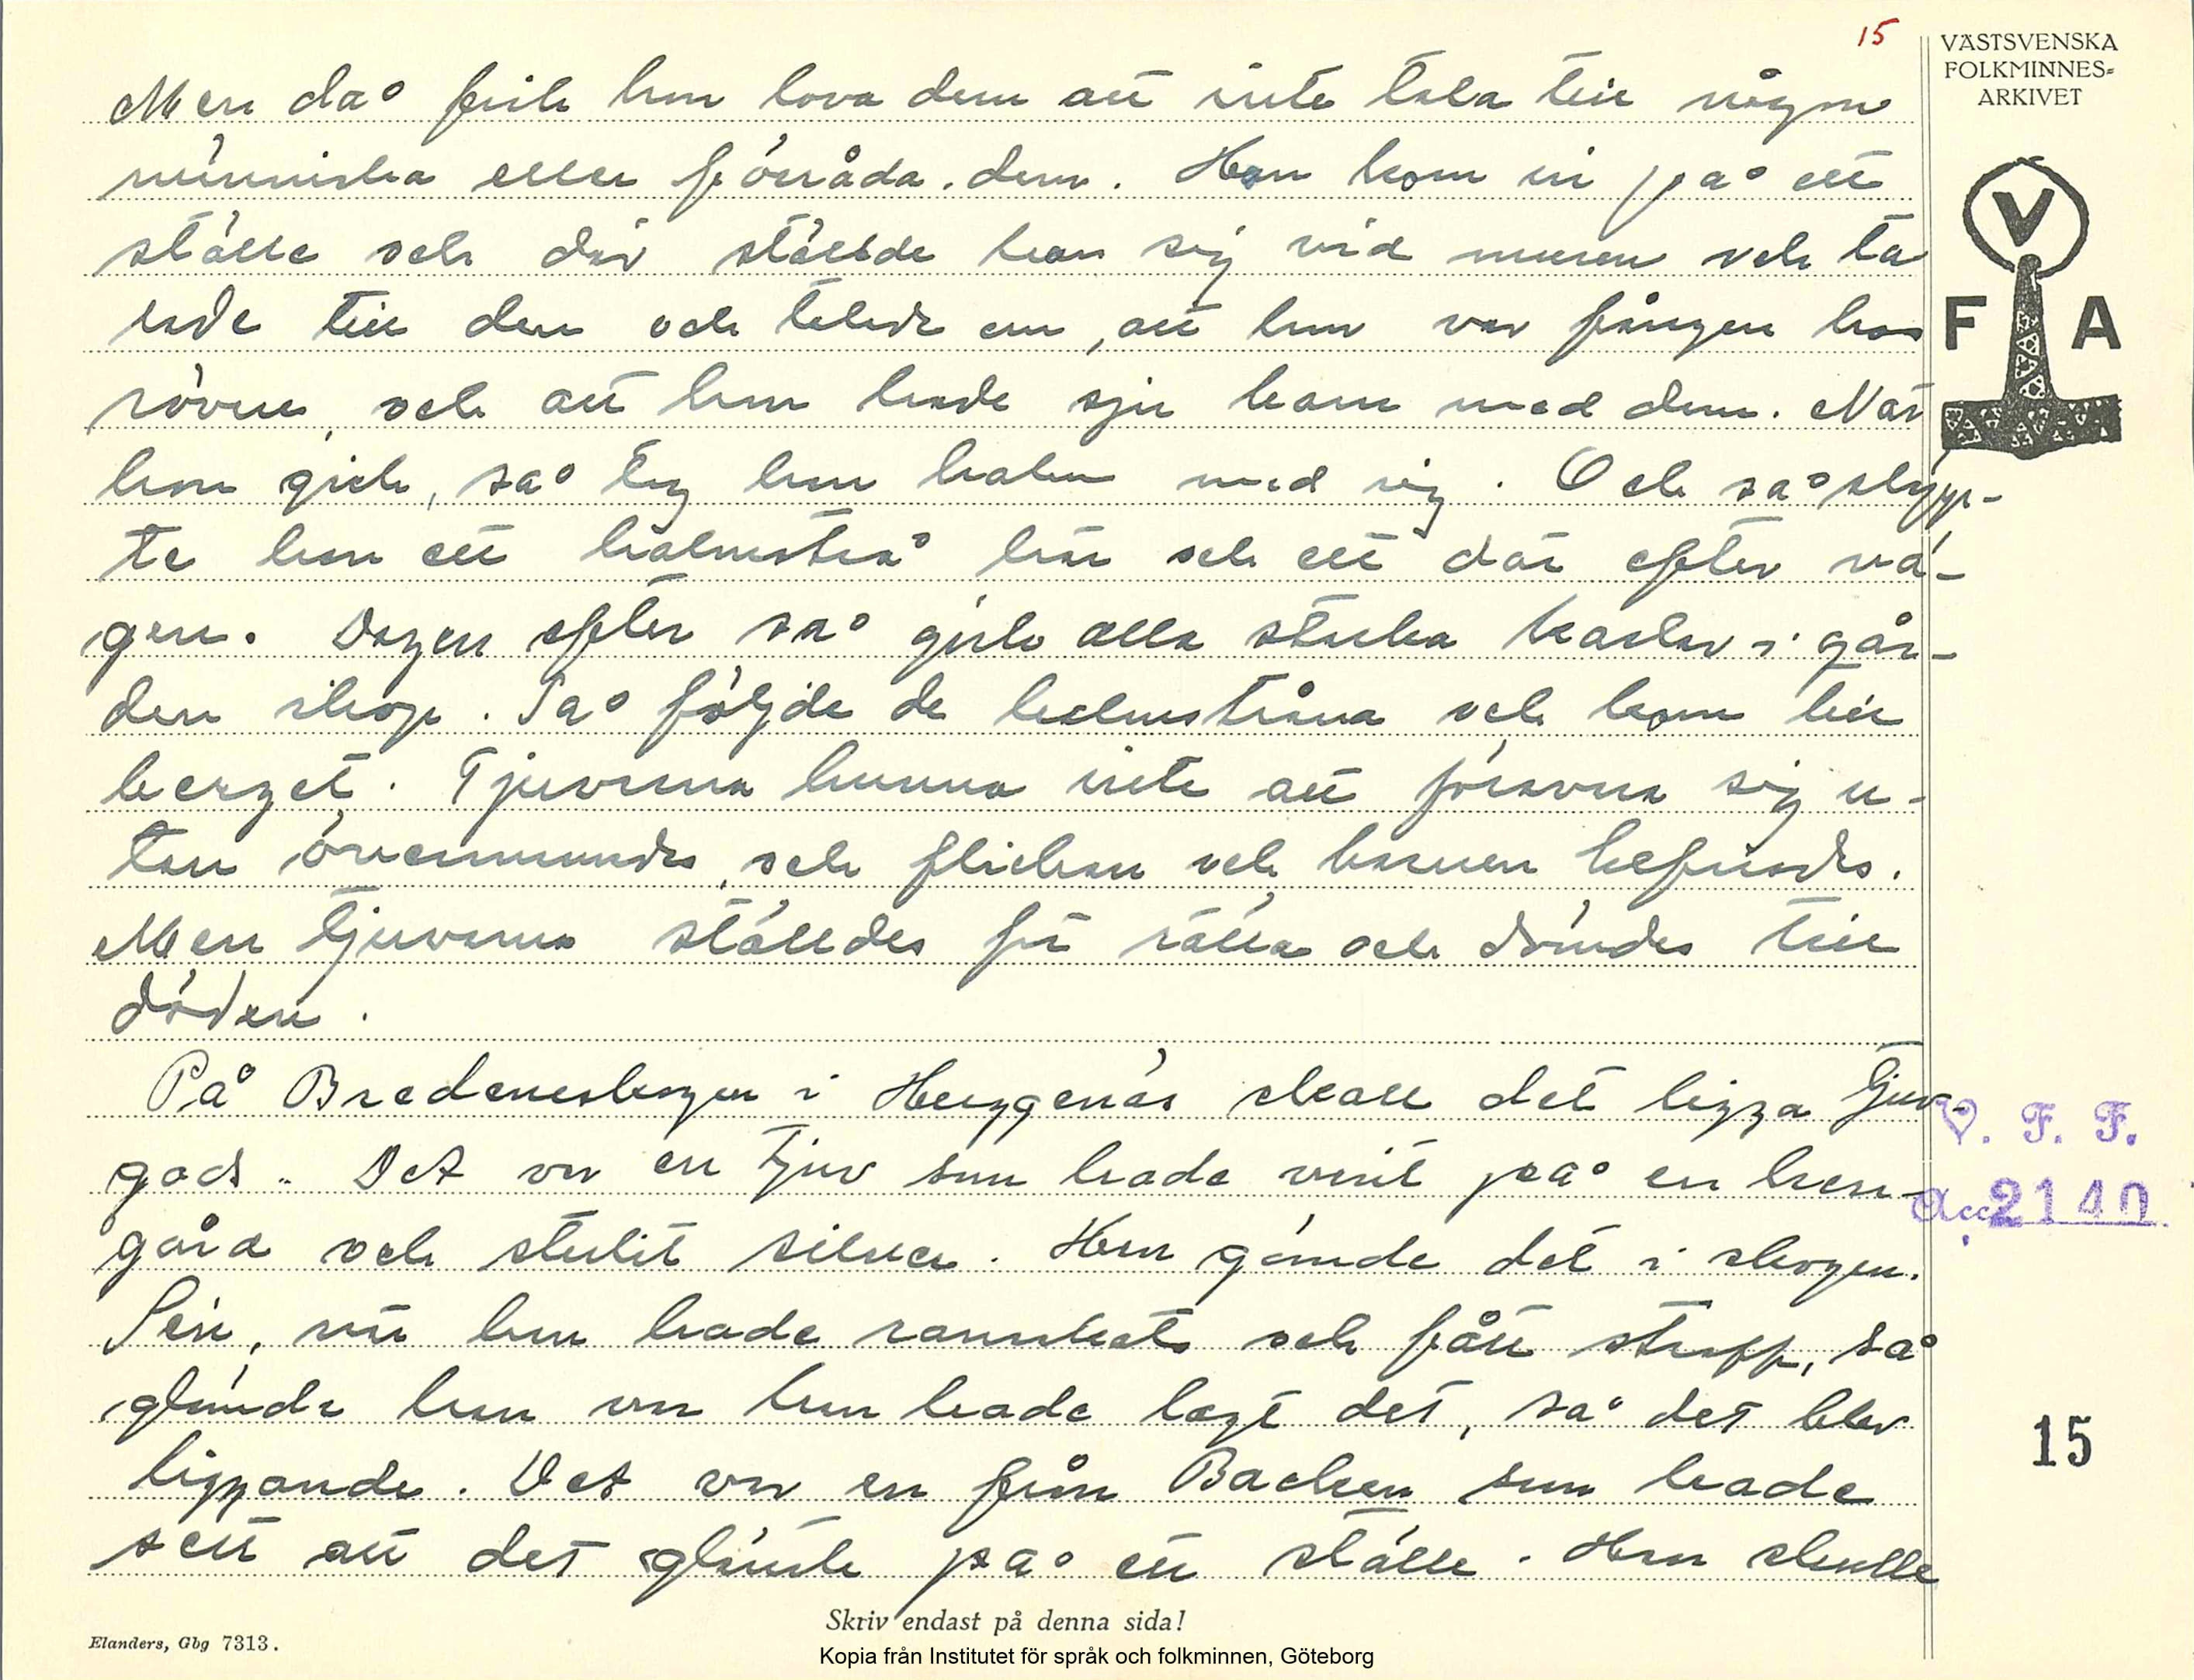 15
VÄSTSVENSKA
FOLKMINNES=
ARKIVET
Men då fick hon lova dem att inte tala till någon
människa eller förråda dem. Hon kom in på ett
ställe och där ställde hon sig vid muren och ta
lade till den och talade om, att hon var fången hos
rövare, och att hon hade sju barn med dem. När
hon gick, så tog hon halm med sig. Och så släpp-
te hon ett halmstrå här och ett där efter vä-
gen. Dagen efter så gick alla starka karlar i går-
den ihop. Så följde de halmstråna och kom till
berget. Tjuvarna hunno inte att försvara sig u-
tan övermannades, och flickan och barnen befriades.
Men tjuvarna ställdes för rätta och dömdes till
döden.
På Bredenesbergen i Heggenäs skall det ligga tjuv-
gods. Det var en tjuv som hade varit på en herr-
gård och stulit silver. Han gömde det i skogen.
Sen, när han hade rannsakats och fått straff, så
glömde han var han hade lagt det, så det blev
liggande. Det var en från Backen som hade
sett att det glänste på ett ställe. Han skulle
V
F A
V. F. F.
Acc. 2140
15
Skriv endast på denna sida!
Elanders, Gbg 7313.
Kopia från Institutet för språk och folkminnen, Göteborg